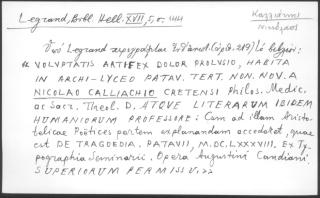 Legrand, Bibl. Hell. XVII, 5, σ. 444
Καλλιάκης
Νικόλαος
Ὑπὸ Legrand περιγράφεται
« VOLVPTATIS ARTIFEX DOLOR PROLVSIO, HABITA
IN ARCHI-LYCEO PATAV. TERT. NON. NOV. A
NICOLAO CALLIACHIO CRETENSI Philos. Medic.
ac Sacr. Theol. D. ATQVE LITERARVM IBIDEM
HUMANIORUM PROFESSORE: Cum ad illam Aristo-
telicae Poëtices partem explanandam accederet, quae
est DE TRAGOEDIA. PATAVII, M.DC.LXXXVIII. Ex Ty-
pographia Seminarii. Opera Augustini Candiani.
SUPERIORUM PERMISSU. »